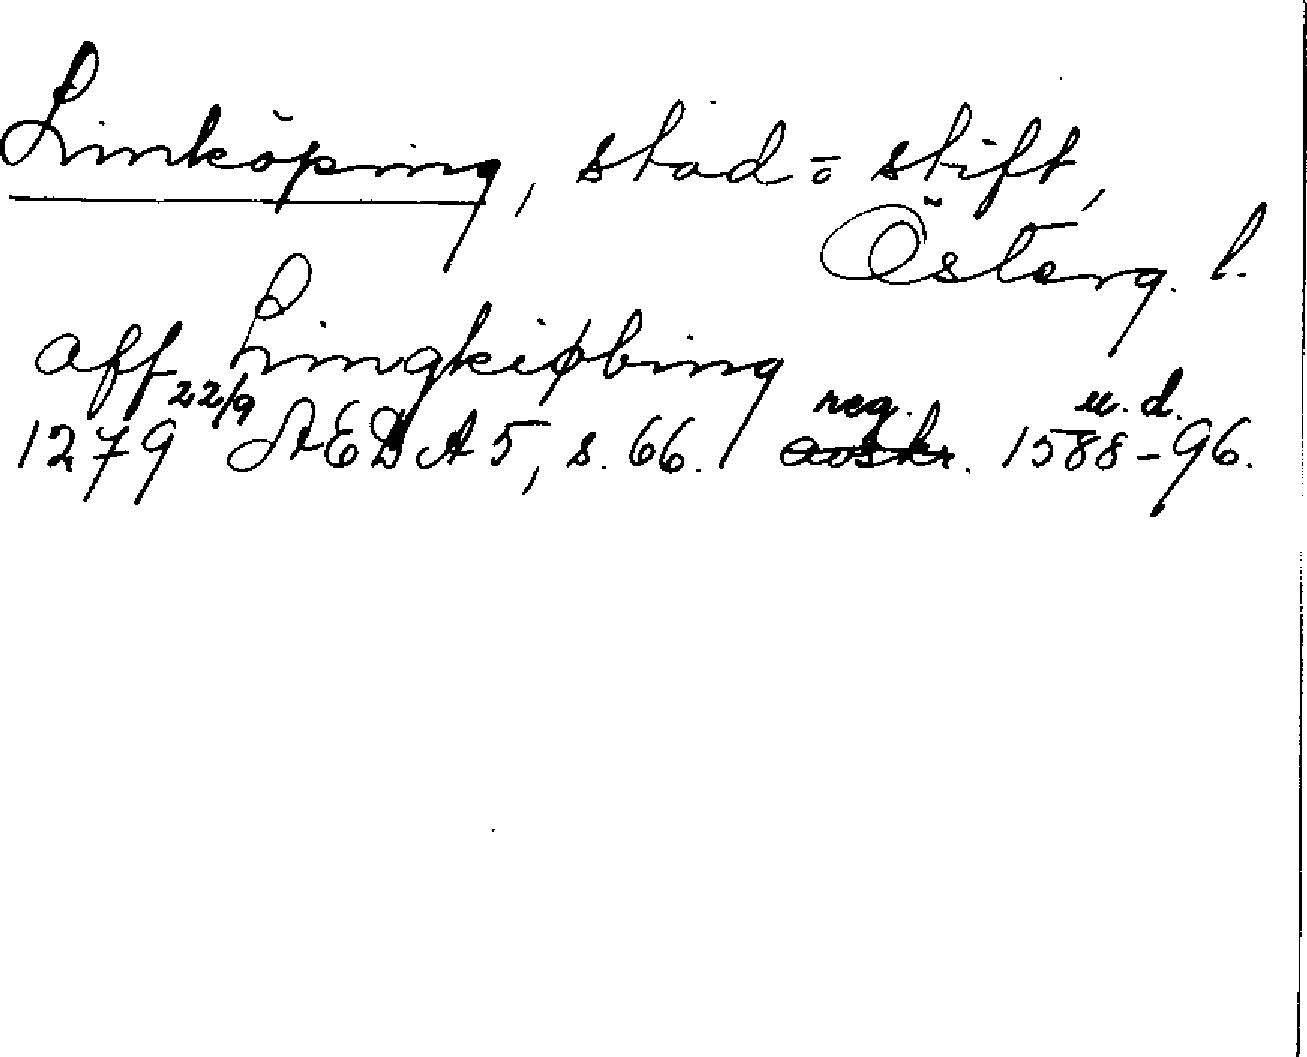 Linköping, stad o stift,
Österg. l.
aff Lingkiøbing
22/9 reg. u.d.
1279 ÆDA 5, s. 66. avskr. 1588-96.